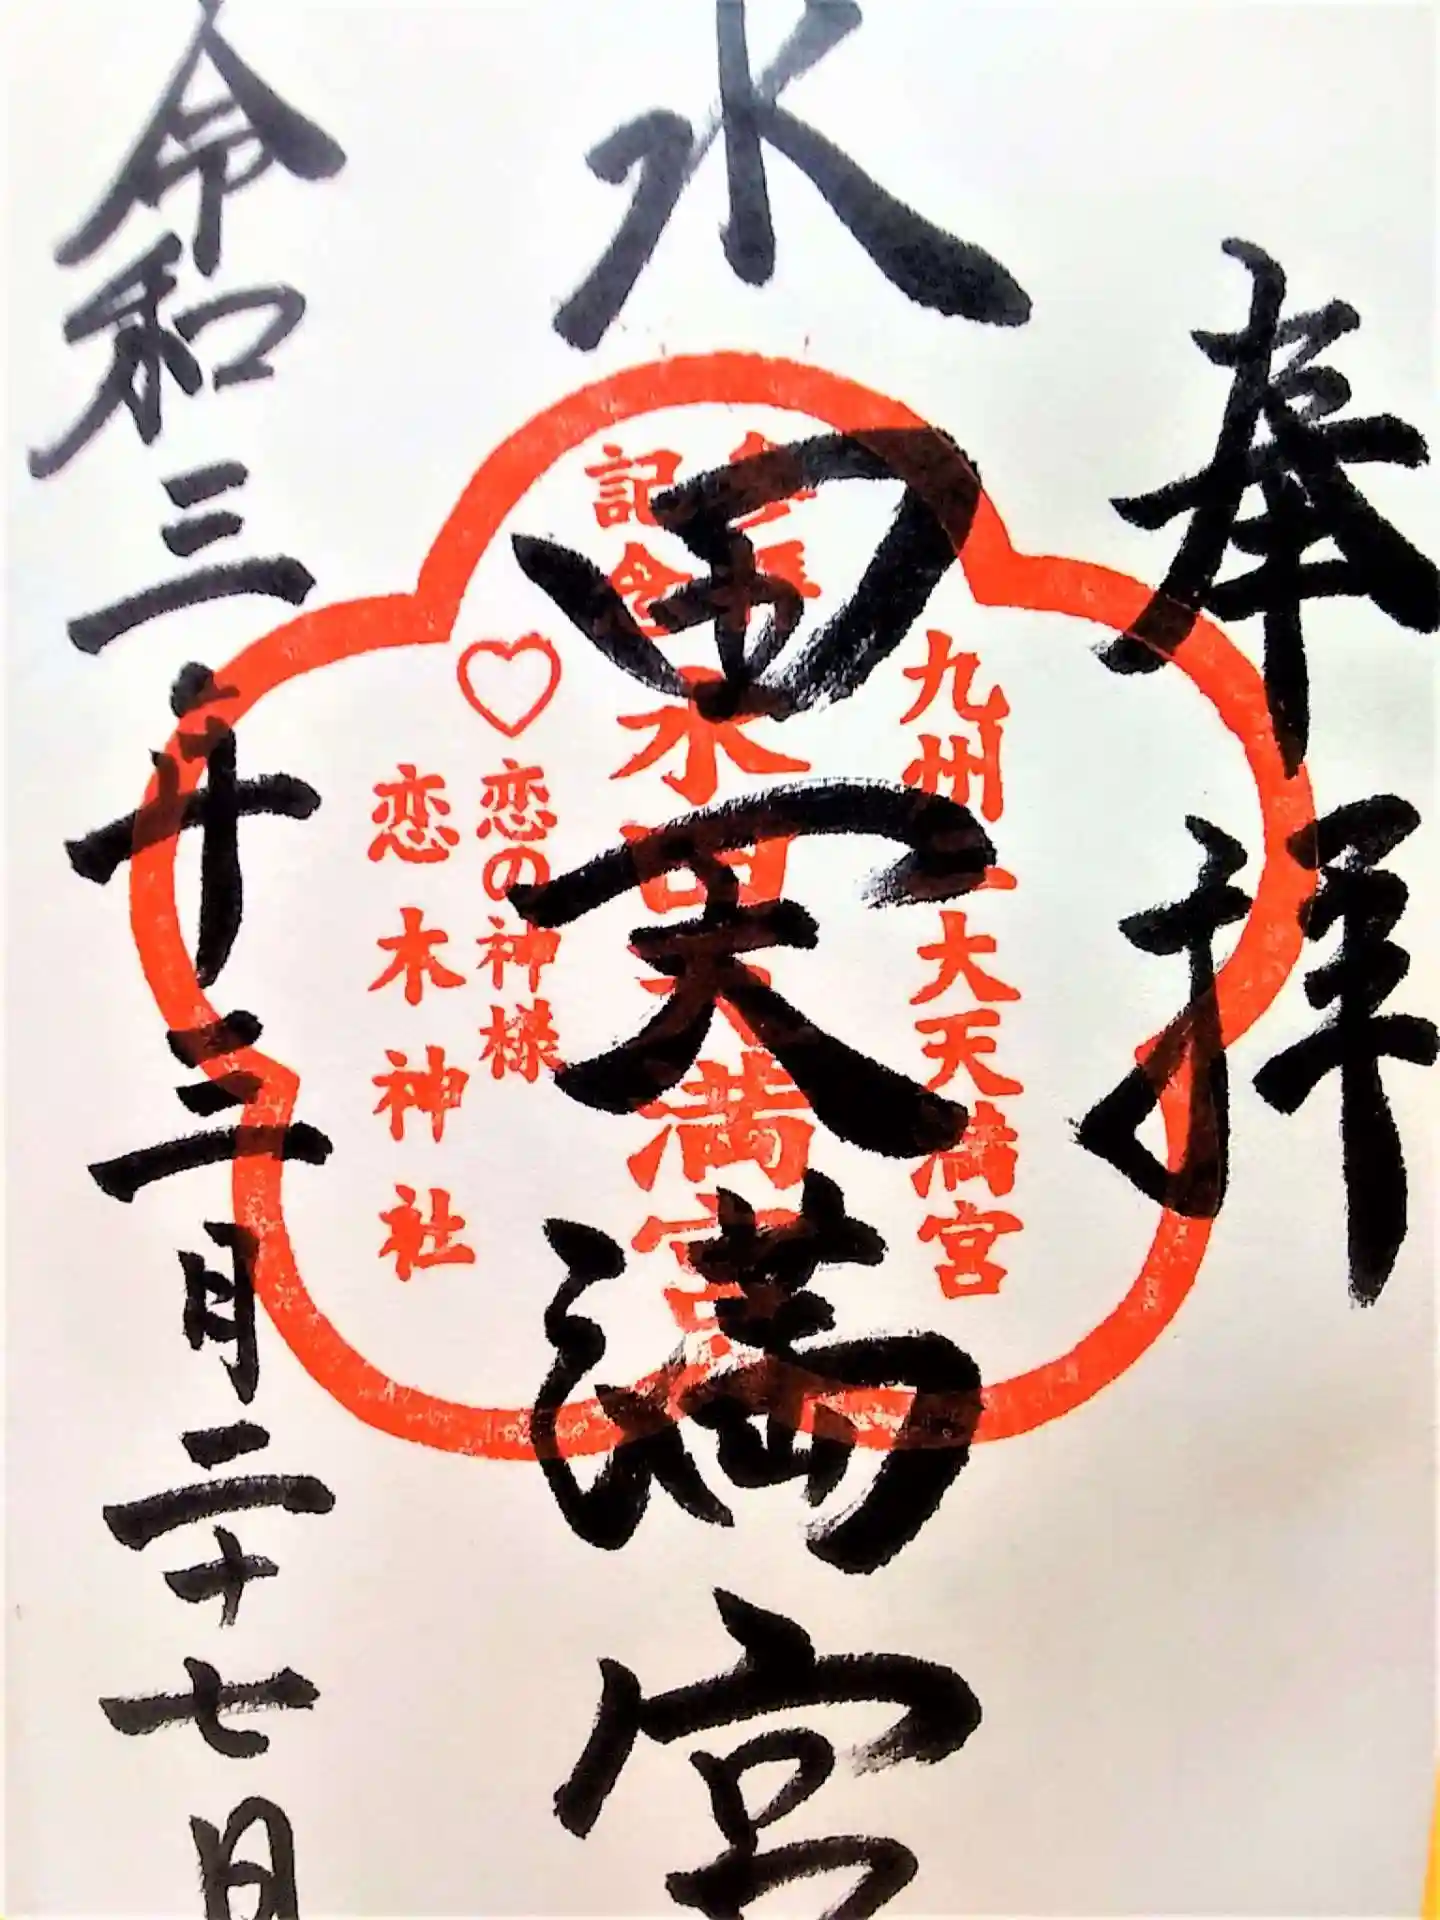 奉拝
水田天満宮
令和三年三月二十七日
九州二大天満宮
参拝
記念
水田天満宮
♡恋の神様
恋木神社